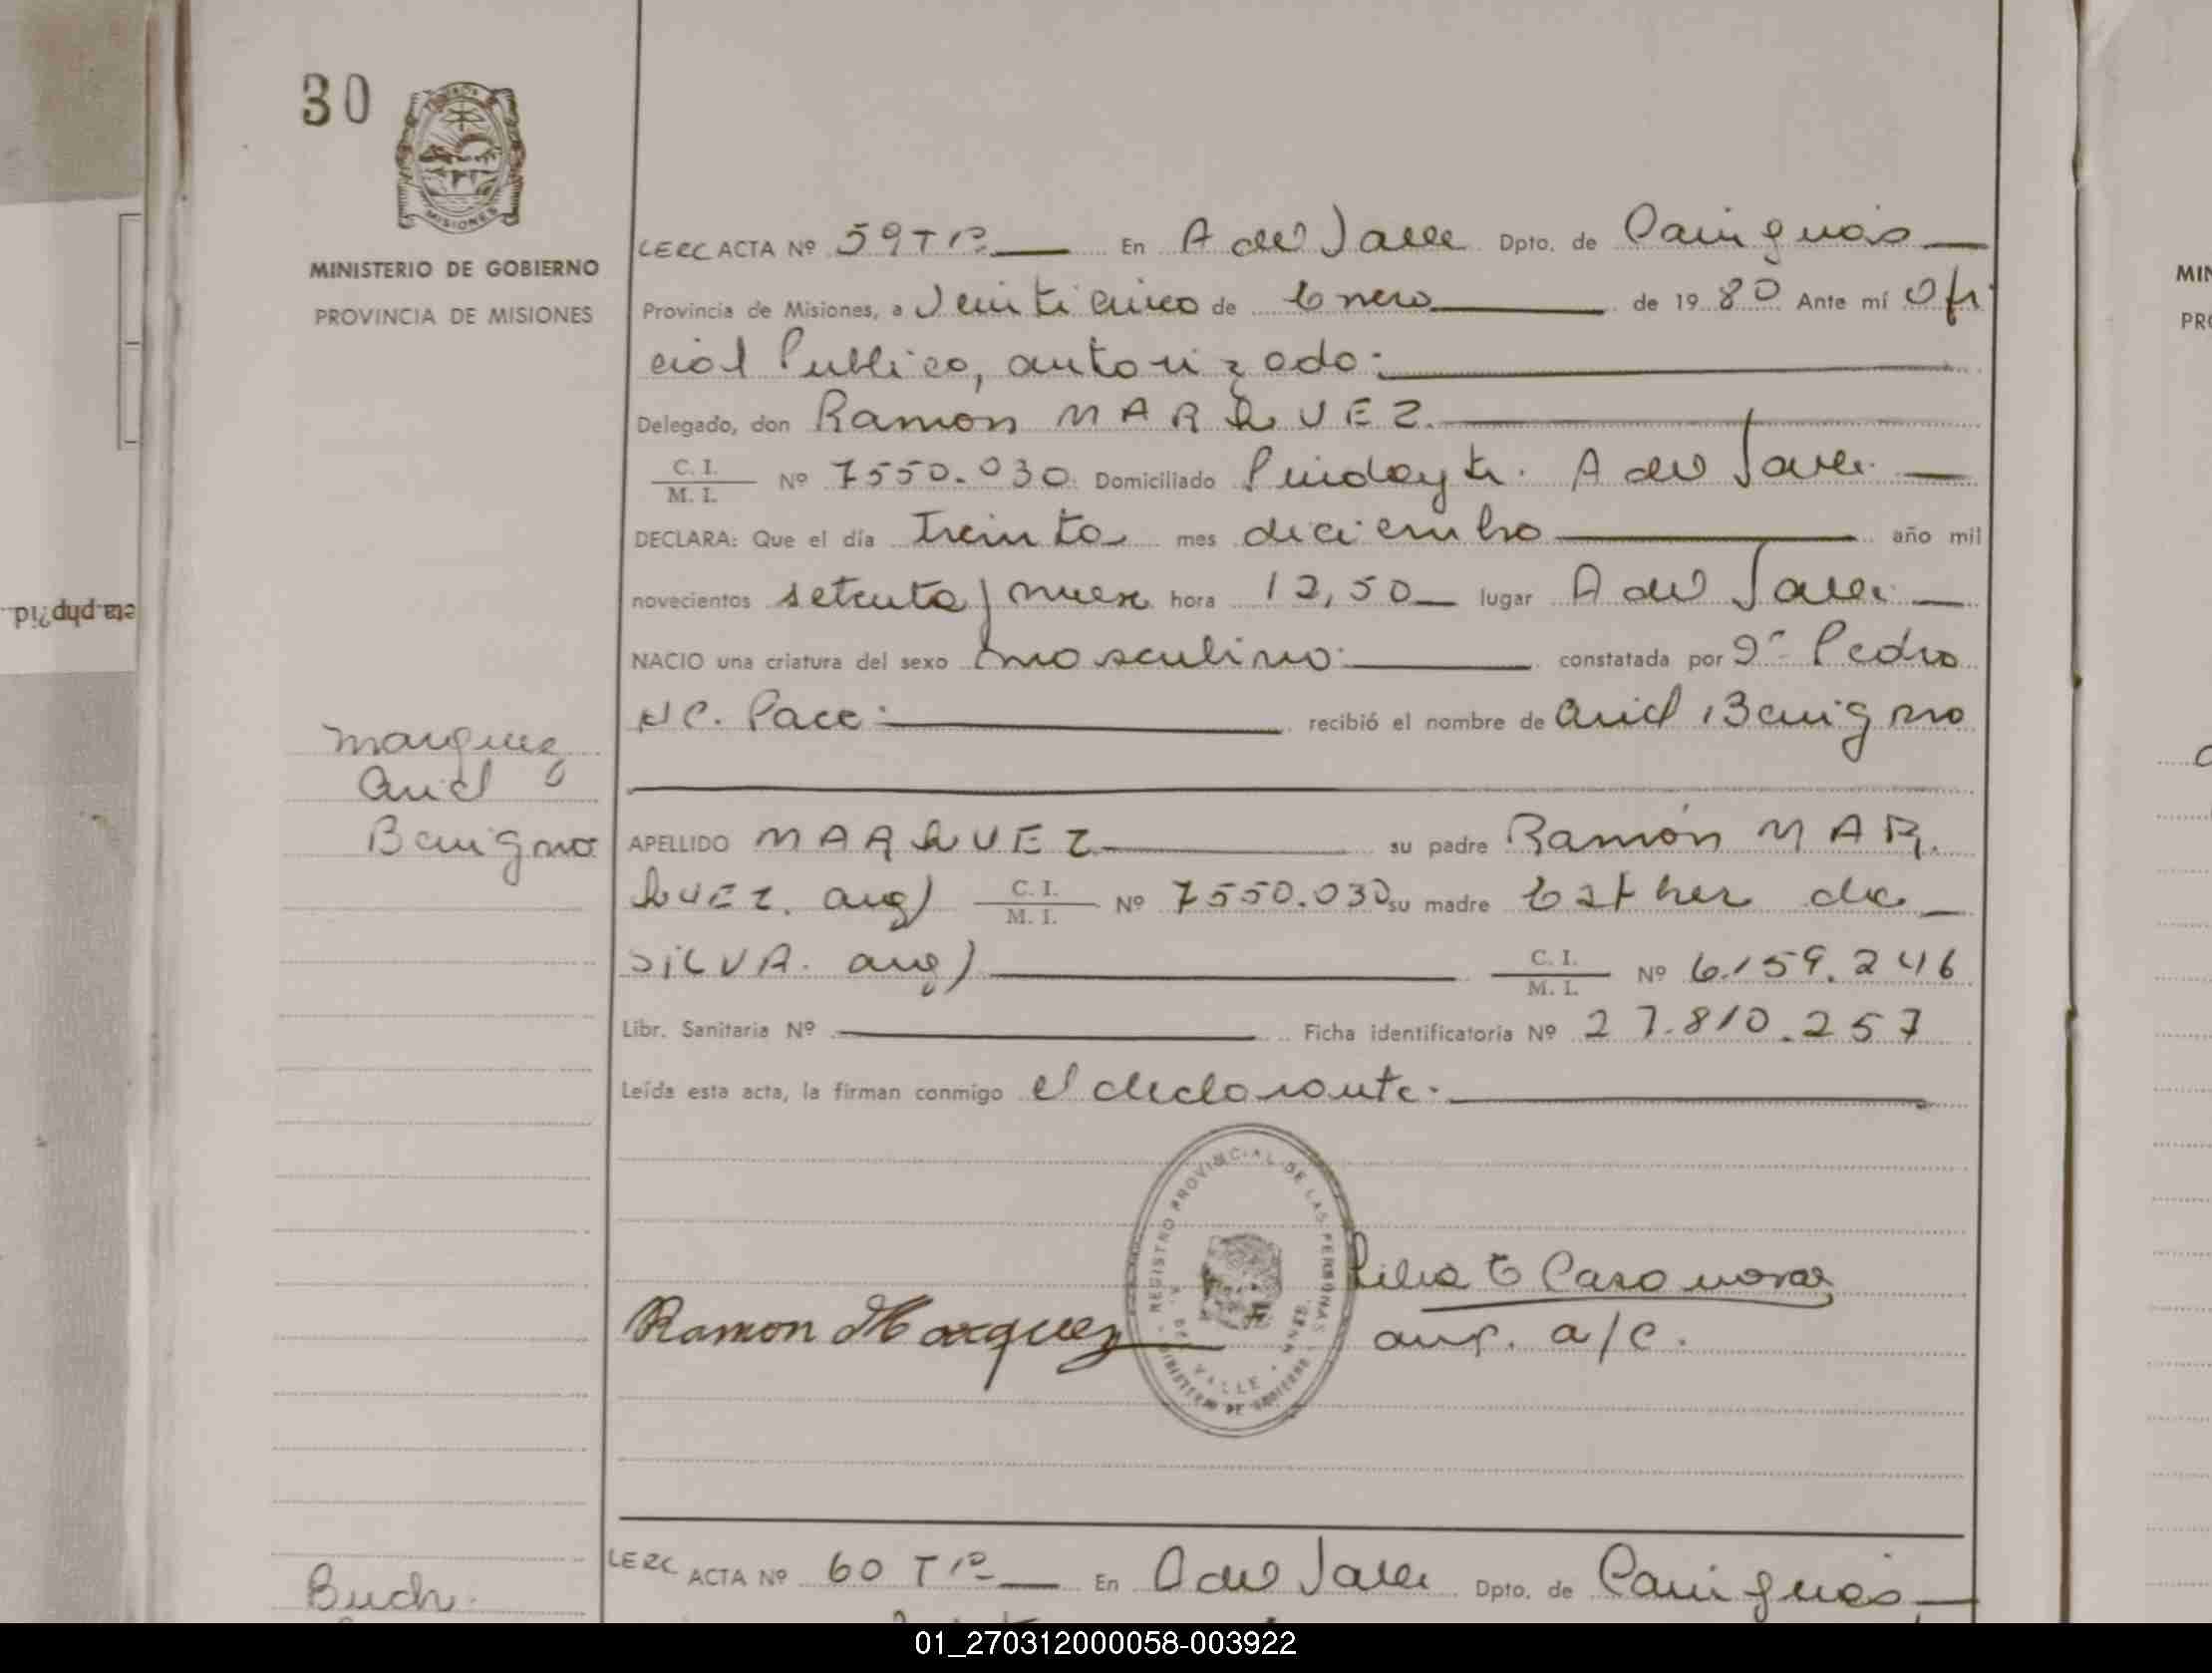 30
MISIONES
MINISTERIO DE GOBIERNO
PROVINCIA DE MISIONES
LERC ACTA Nº 59 Tº En A del Valle Dpto. de Cainguás
Provincia de Misiones, a Veinticinco de Enero de 1980 Ante mí Ofi
cial Publico, autorizado.
Delegado, don Ramon MARQUEZ.
C. I. / M. I. Nº 7550.030 Domiciliado Pindayti. A del Valle.
DECLARA: Que el día treinta mes diciembre año mil
novecientos setenta y nueve hora 12,50 lugar A del Valle.
NACIO una criatura del sexo masculino. constatada por Pedro
Pace recibió el nombre de Ariel Benigno
Marquez
Ariel
Benigno
APELLIDO MARQUEZ su padre Ramón MAR.
QUEZ. arg) C. I. / M. I. Nº 7550.030 su madre Esther de
SILVA. arg) C. I. / M. I. Nº 6.159.246
Libr. Sanitaria Nº Ficha identificatoria Nº 27.810.257
Leída esta acta, la firman conmigo el declarante.
REGISTRO PROVINCIAL DE LAS PERSONAS
VALLE
MINISTERIO DE GOBIERNO
Ramon Marquez
Lilia E Casanovas
a/c.
LERC ACTA Nº 60 Tº En A del Valle Dpto. de Cainguás
eta.php?id
MIN
PRO
01_270312000058-003922